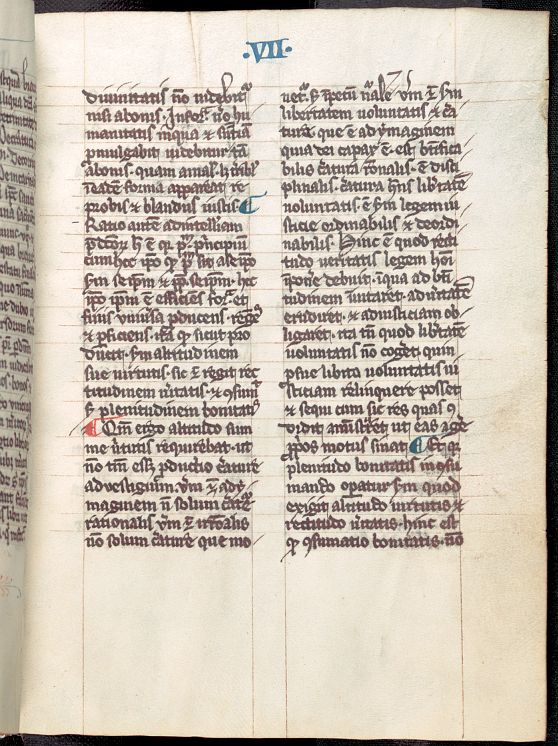 ·VII·
diuinitatis nō uidebit᷑
nisi abonis. Inferi᷑. ũo hu
manitatis in qua ⁊ sñtia
pmulgabit᷑ uidebitur tā
abonis. quam amal. lꝫ tibił
ī eadē forma appareat re
probis ⁊ blandus iustis. ¶
Ratio autē ad intelliam
pdcōꝝ h̄ ē qꝛ pᵐ. pncipiū
cum hec ip̄o qꝫ pᵐ sit ase ip̄o
fm̄ se ip̄m ⁊ ꝓp̄. seip̄m. hec
ip̄o ip̄m ē efficiens for᷑. et
finis vniuˀsa ꝓducens. regēs
⁊ ꝑficiens. ita qꝫ sicut pro
ducit fm̄ altitudinem
sue uirtutis. sic ⁊ regit rec
titudinem uˀitatis. ⁊ ꝯsūm̄
ẜ plenitudinem bonitatis
¶ Qm̄ ergo altitudo sum
me uˀtutis requirebat. ut
nō tm̄ eēt ꝓductio cat̄ure
ad uestigium. uˀm ⁊ ad y
maginem. n̄ solum cat̄ure
rationalis uˀm ⁊ irrōnalis
nō solum cat̄ure que mo
uet᷑. ꝑ īpetū nał̄e uˀm ⁊ fm̄
libertatem uoluntatis. ⁊ cā
tura. que ē ad ymaginem
quia dei capax ē. est btīfica
bilis cat̄ura rōnalis. ē disci
plinalis. cat̄ura hn̄s libtatē
uoluntatis. ē fm̄ legem iu
sticie ordinabilis ⁊ deordi
nabilis. Hinc ē quod recti
tudo ueritatis legem hoī
īponˀe debuit. ī qua ad bti
tudinem īuitaret. ad uˀitatē
erudiret. ⁊ ad iusticiam ob
ligaret. ita tn̄ quod libtatē
uoluntatis nō cogˀet. quin
ꝓsue libito uoluntatis iu
sticiam relinquere posset
⁊ sequi cum sic res quas ꝯ
didit amīstret ut eas agˀe
ꝓpōs motus sinat. ¶ Et qꝛ
plenitudo bonitatis ī ꝯsu
mando operatur fm̄ quod
exigit altitudo uirtutis ⁊
rectitudo uˀitatis. hinc est
qꝫ ꝯsumatio bonitatis. nō